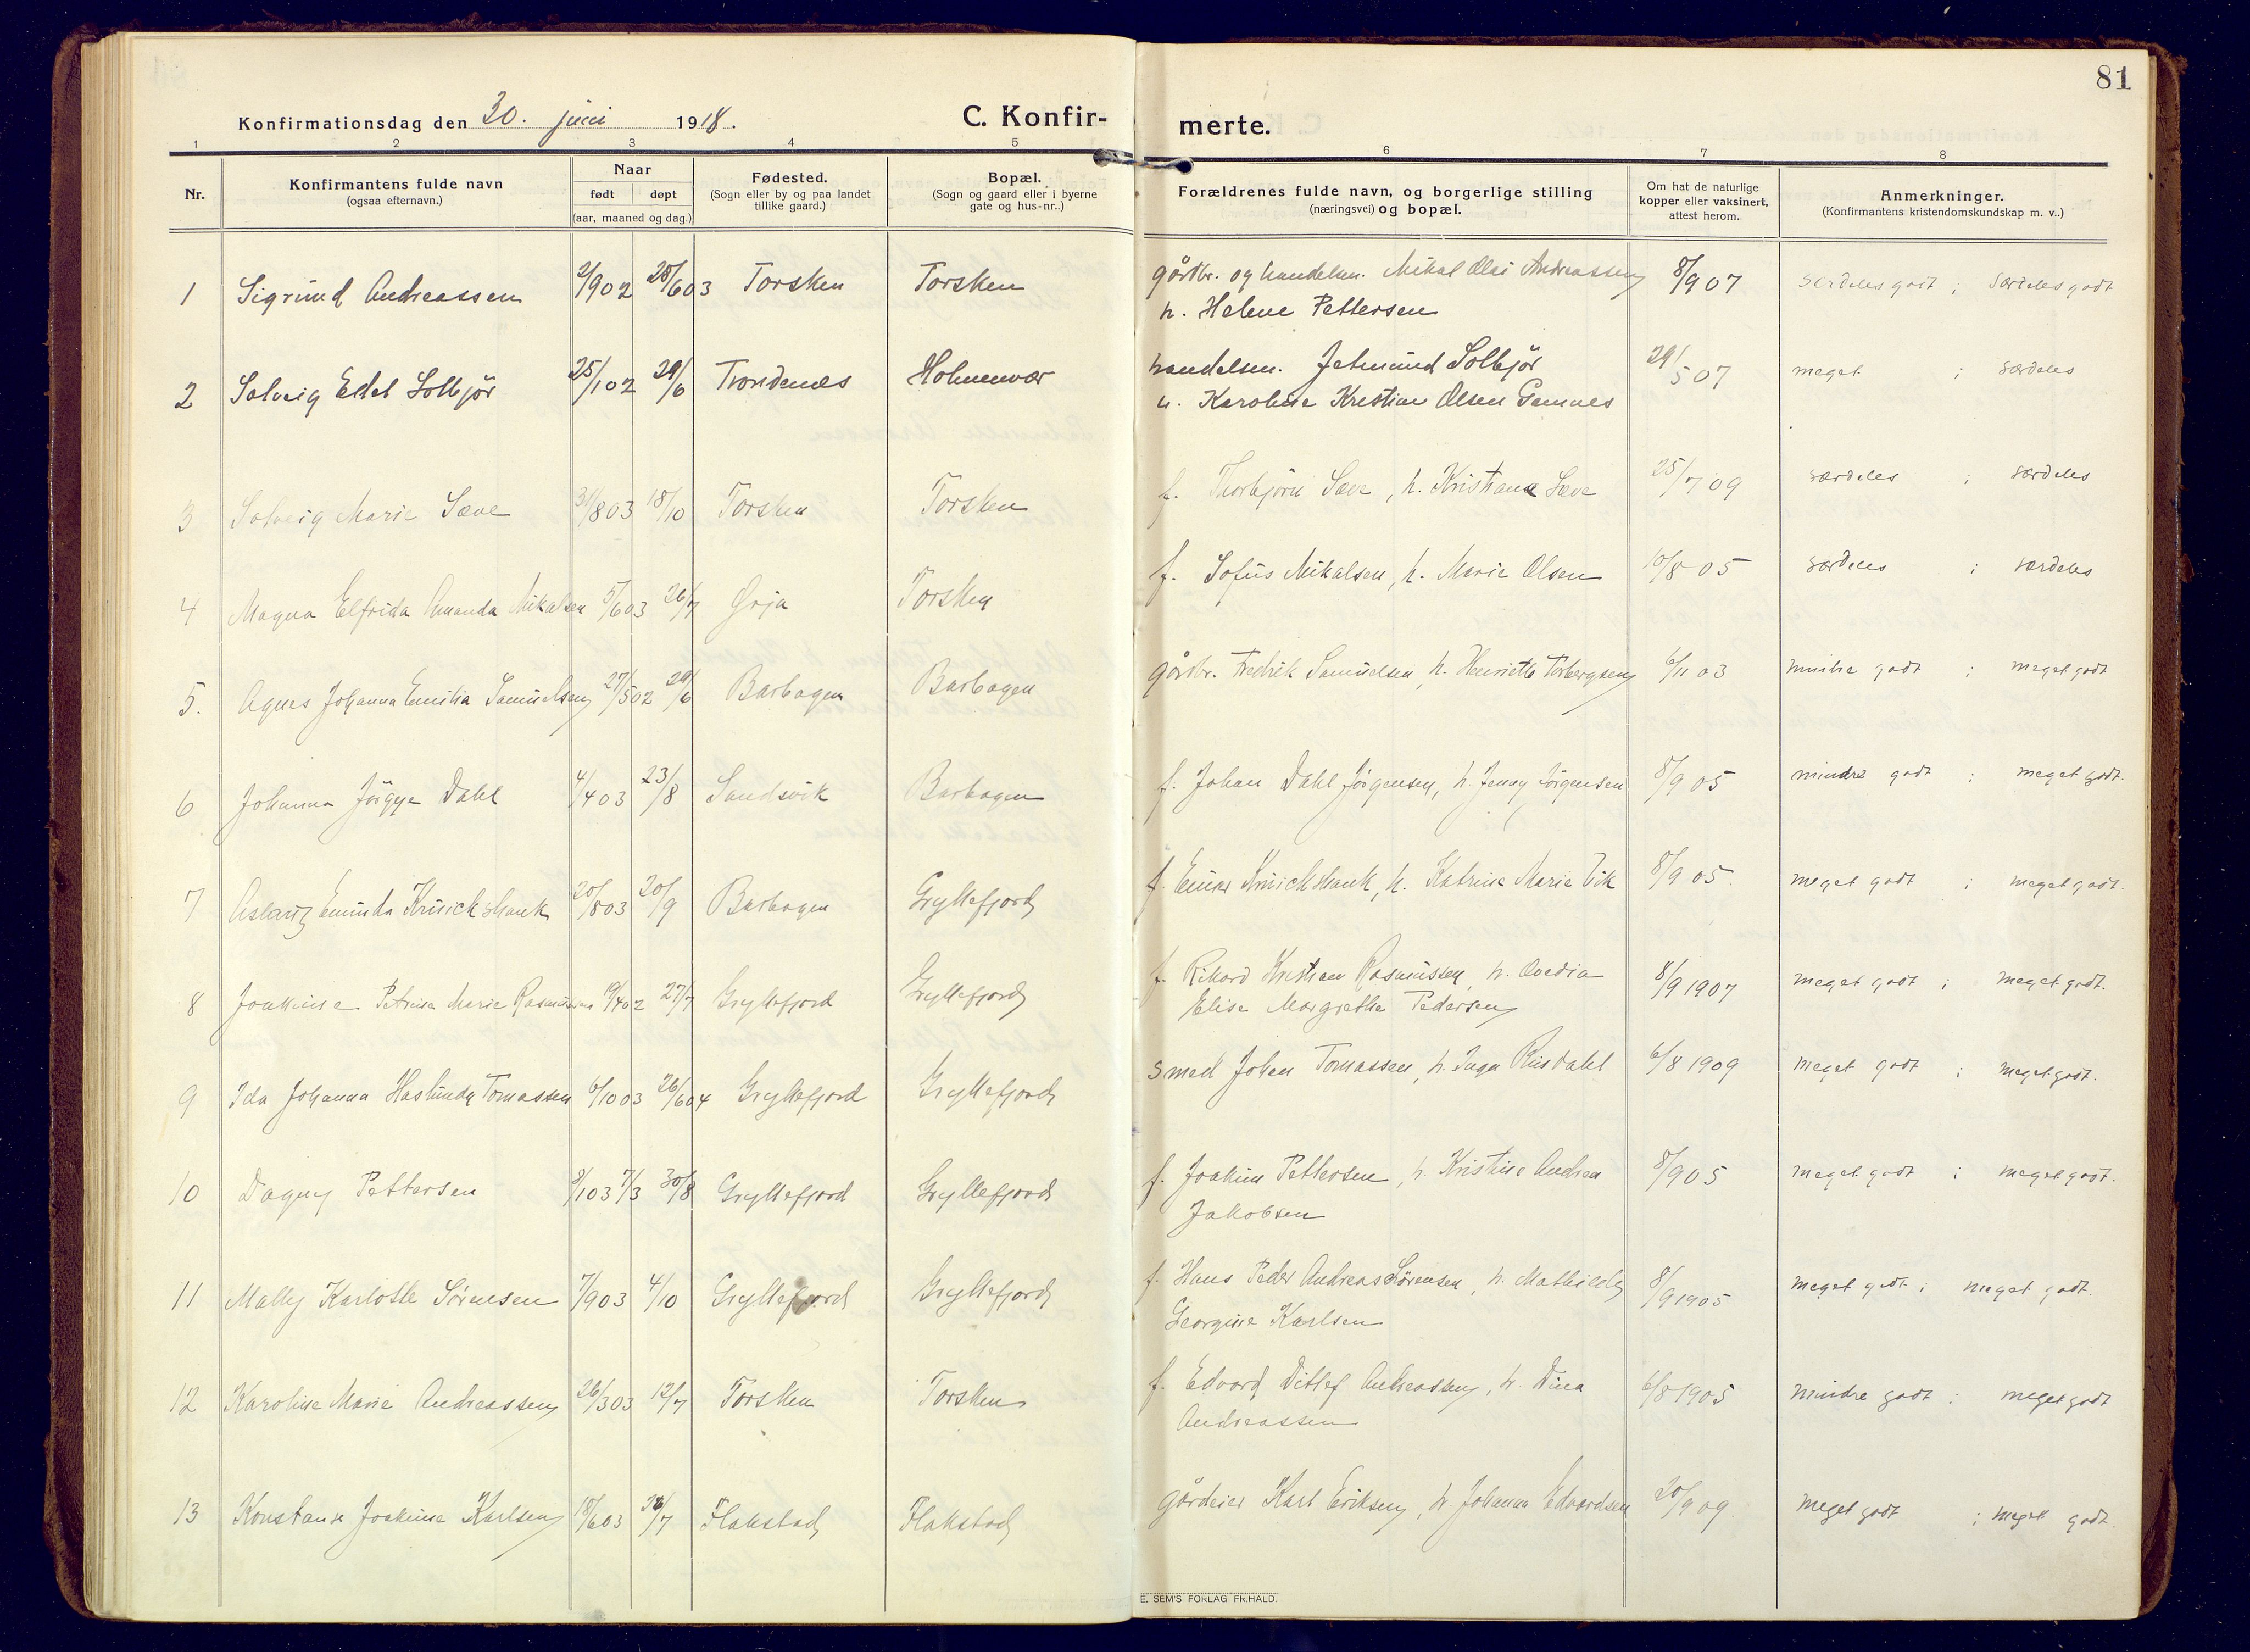 81
Konfirmationsdag den 30. juni 1918.
C. Konfir-
merte.
1 2 3 4 5 6 7 8
Nr.
Konfirmantens fulde navn
(ogsaa efternavn.)
Naar
født døpt
(aar, maaned og dag.)
Fødested.
(Sogn eller by og paa landet
tillike gaard.)
Bopæl.
(Sogn og gaard eller i byerne
gate og hus-nr.)
Forældrenes fulde navn, og borgerlige stilling
(næringsvei) og bopæl.
Om hat de naturlige
kopper eller vaksinert,
attest herom.
Anmerkninger.
(Konfirmantens kristendomskundskap m. v.)
1 Sigrund Andreassen 2/902 28/603 Torsken Torsken gårdbr. og handelsm. Mikal Olai Andreassen 8/907 særdeles godt ; særdeles godt
h. Helene Pettersen
2 Solveig Edel Solbjör 25/102 29/6 Trondenes Holmenvær handelsm. Jetmund Solbjör 29/507 meget ; særdeles
h. Karoline Kristine Olsen Gamnes
3 Solveig Marie Sæve 31/803 18/10 Torsken Torsken f. Thorbjörn Sæve, h. Kristiane Sæve 25/709 særdeles ; særdeles
4 Magna Elfrida Amanda Mikalsen 5/603 26/7 Grja Torsken f. Sofus Mikalsen, h. Marie Olsen 10/805 særdeles ; særdeles
5. Agnes Johanna Emilia Samuelsen 27/502 29/6 Barbogen Barbogen gårdbr. Fredrik Samuelsen, h. Henriette Torbergsen 6/1103 mindre godt ; meget godt
6 Johanna Jörgine Dahl 4/403 23/8 Sandsvik Barbogen f. Johan Dahl Jörgensen, h. Jenny Jörgensen 8/905 mindre godt ; meget godt.
7 Aslaug Eminda Kruickshank 20/803 20/9 Barbogen Gryllefjord f. Einar Kruickshank, h. Katrine Marie Vik 8/905. meget godt ; meget godt.
8 Joakine Petrina Marie Rasmussen 19/402 27/7 Gryllefjord Gryllefjord f. Rikard Kristian Rasmussen, h. Ovedia 8/91907 meget godt ; meget godt.
Elise Margrethe Pedersen
9 Ida Johanna Haslunda Tomassen 6/1003 26/604 Gryllefjord Gryllefjord smed Johan Tomassen, h. Inga Riisdahl 6/81909 meget godt ; meget godt.
10 Dagny Pettersen 8/103 7/3 30/8 Gryllefjord Gryllefjord f. Joakim Pettersen, h. Kristine Andrea 8/905 meget godt ; meget godt.
Jakobsen
11 Mally Karlotte Sörensen 7/903 4/10 Gryllefjord Gryllefjord f. Hans Peder Andreas Sörensen, h. Mathilde 8/91905 meget godt ; meget godt.
Georgine Karlsen
12 Karoline Marie Andreassen 26/303 12/7 Torsken Torsken f. Edvard Ditlef Andreassen, h. Dina 6/81905 mindre godt ; meget godt
Andreassen
13 Konstanse Joakime Karlsen 18/603 /7 Flakstad Flakstad gårdeier Karl Eriksen, h Johanna Edvardsen 20/909. meget godt ; meget godt.
E. SEM'S FORLAG FR.HALD.